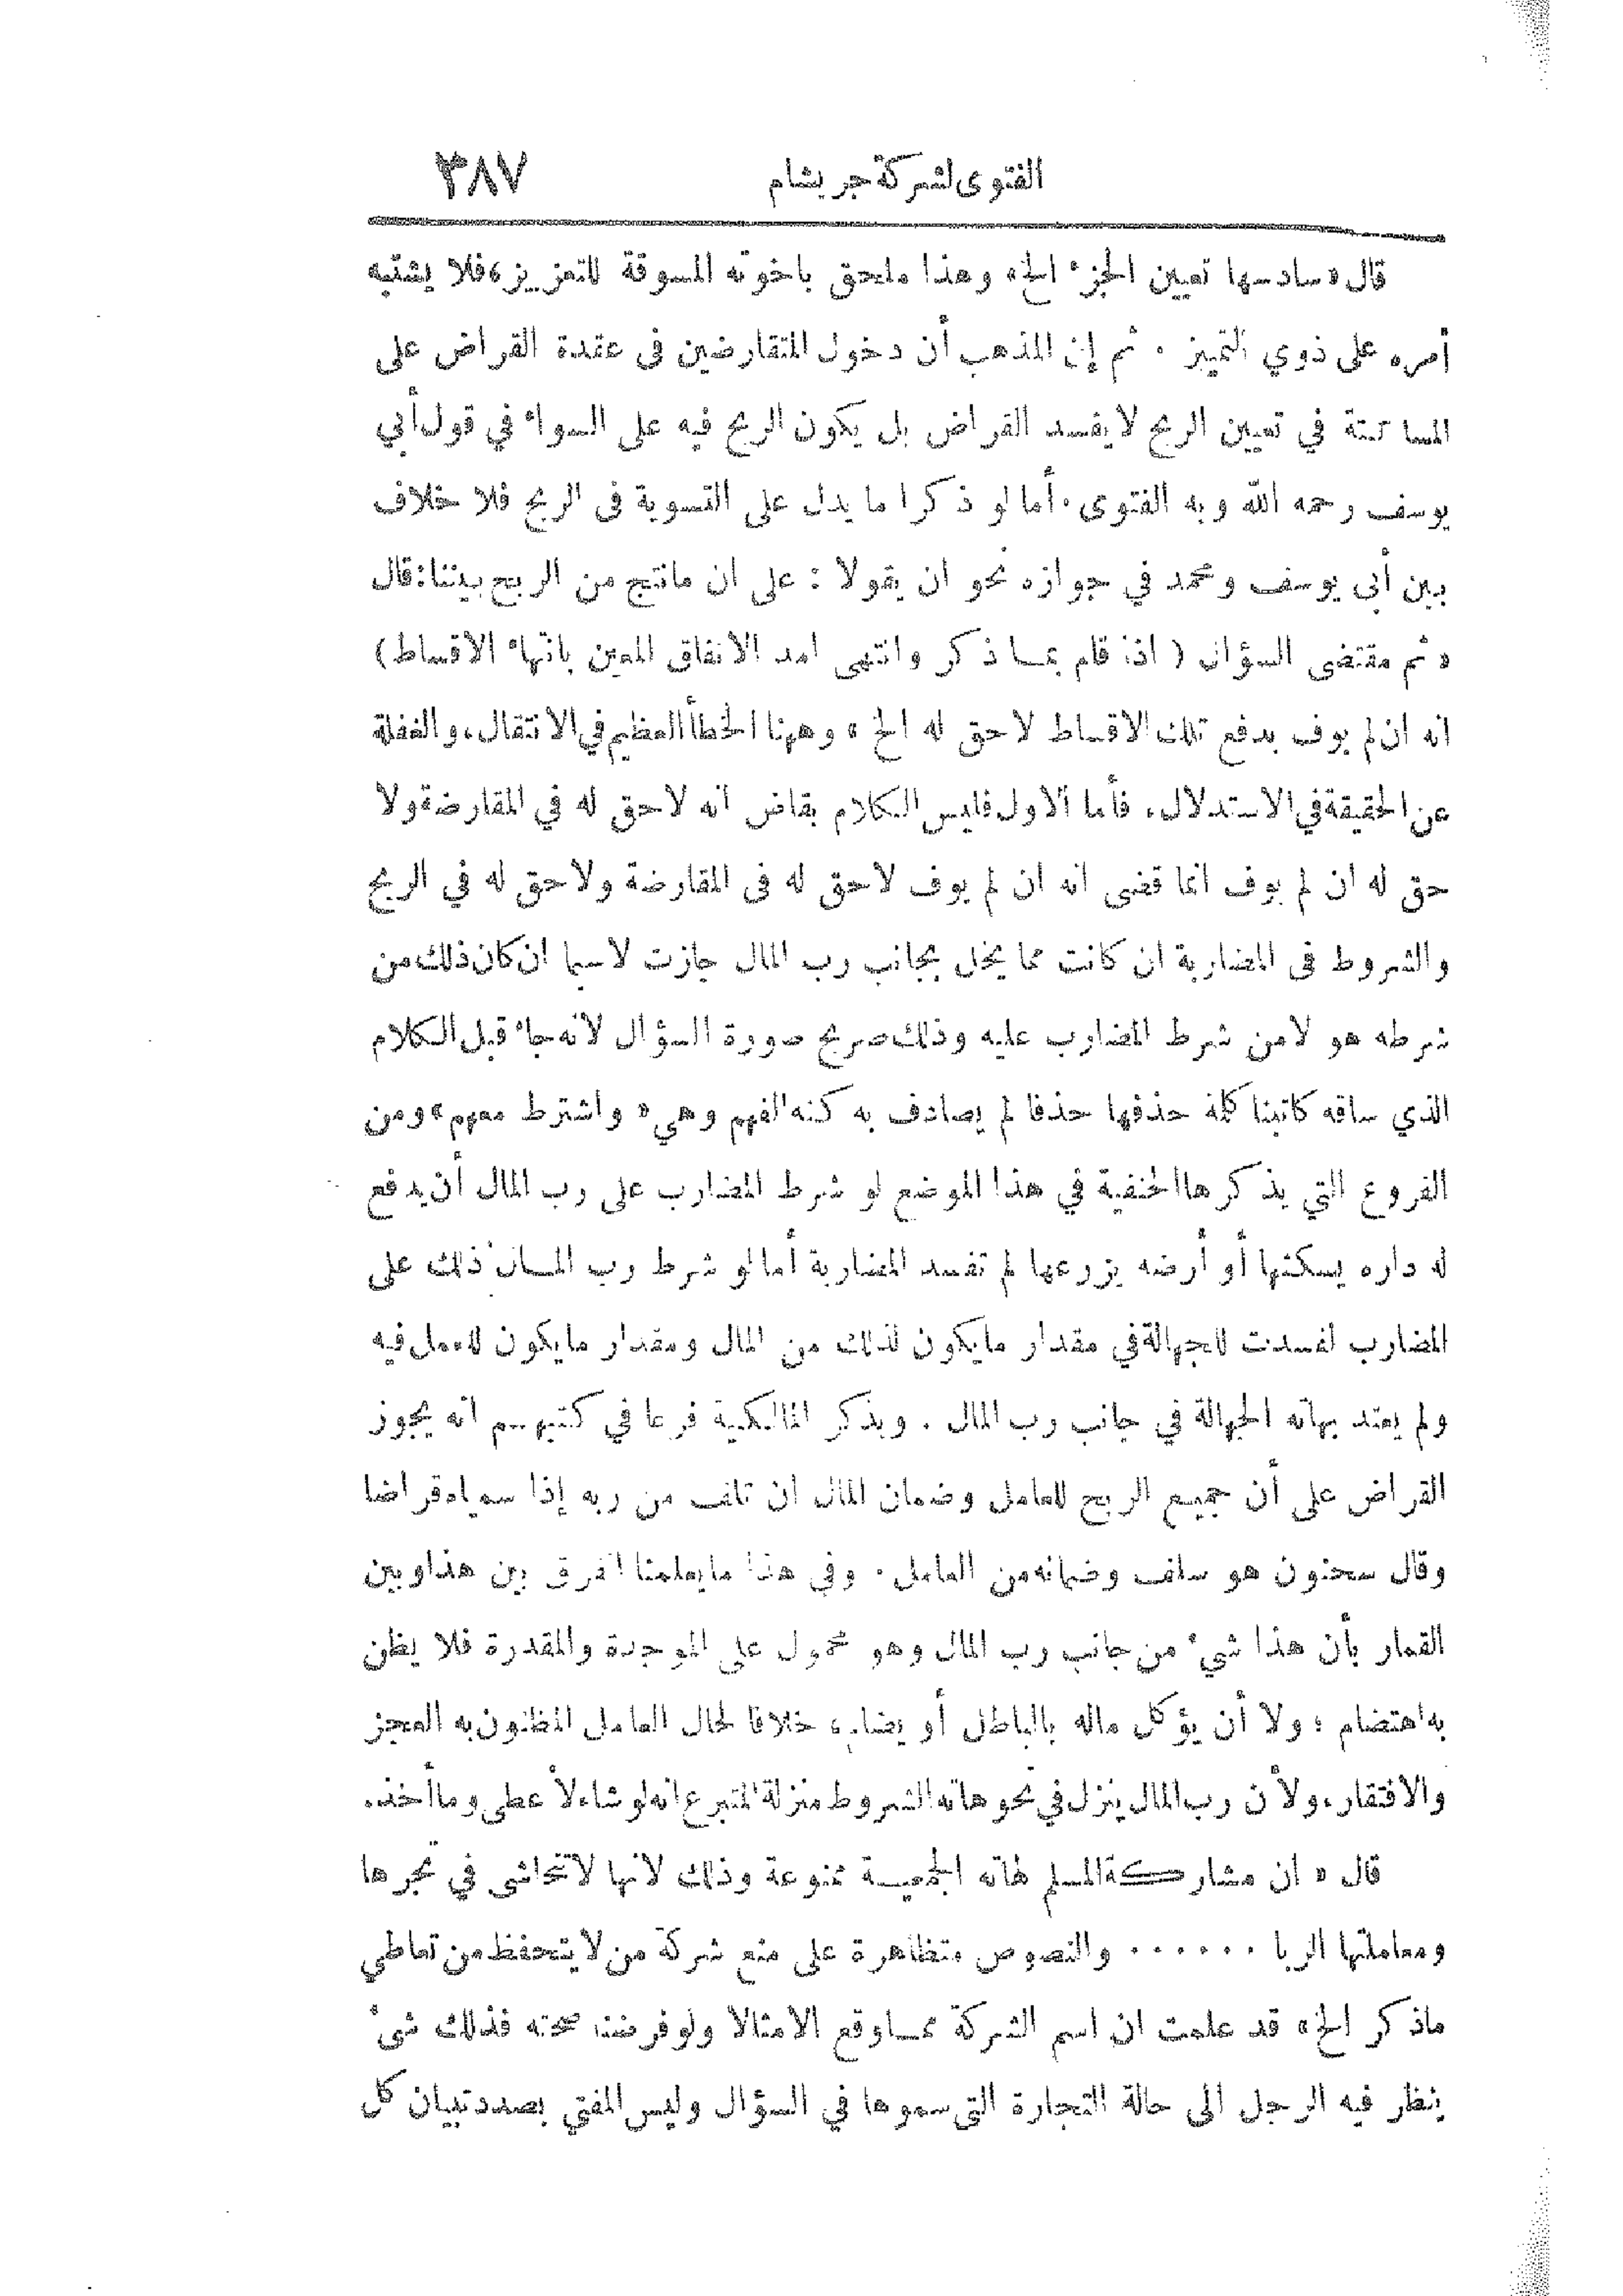 الفتوى لشركة جريشام ٣٨٧
قال «سادسها تعيين الجزء الخ» وهذا ملحق باخوته المسوقة للتعزيز، فلا يشتبه
أمره على ذوي التمييز . ثم إن المذهب أن دخول المتقارضين في عقدة القراض على
المساكتة في تعيين الربح لا يفسد القراض بل يكون الربح فيه على السواء في قول أبي
يوسف رحمه الله وبه الفتوى . أما لو ذكرا ما يدل على التسوية في الربح فلا خلاف
بين أبي يوسف ومحمد في جوازه نحو ان يقولا : على ان مانتج من الربح بيننا : قال
« ثم مقتضى السؤال ( اذا قام بما ذكر وانتهى امد الاتفاق المعين بانهاء الاقساط )
انه ان لم يوف بدفع تلك الاقساط لا حق له الخ » وههنا الخطأ العظيم في الانتقال، والغفلة
عن الحقيقة في الاستدلال، فأما الاول فليس الكلام بقاض انه لا حق له في المقارضة ولا
حق له ان لم يوف انما قضى انه ان لم يوف لا حق له في المقارضة ولا حق له في الربح
والشروط في المضاربة ان كانت مما يخل بجانب رب المال جازت لا سيما ان كان ذلك من
شرطه هو لا من شرط المضارب عليه وذلك صريح صورة السؤال لانه جاء قبل الكلام
الذي ساقه كاتبنا كلمة حذفها حذفا لم يصادف به كنه الفهم وهي « واشترط معهم » ومن
الفروع التي يذكرها الحنفية في هذا الموضع لو شرط المضارب على رب المال أن يدفع
له داره يسكنها أو أرضه يزرعها لم تفسد المضاربة أما لو شرط رب المال ذلك على
المضارب لفسدت للجهالة في مقدار ما يكون لذلك من المال ومقدار ما يكون للعمل فيه
ولم يعتد بهاته الجهالة في جانب رب المال . ويذكر المالكية فرعا في كتبهم انه يجوز
القراض على أن جميع الربح للعامل وضمان المال ان تلف من ربه إذا سمياه قراضا
وقال سحنون هو سلف وضمانه من العامل . وفي هذا ما يعلمنا الفرق بين هذا وبين
القمار بأن هذا شيء من جانب رب المال وهو محمول على الموجدة والمقدرة فلا يظن
به اهتضام ؛ ولا أن يؤكل ماله بالباطل أو يضام، خلافا لحال العامل المظنون به العجز
والافتقار، ولأن رب المال ينزل في نحو هاته الشروط منزلة المتبرع انه لو شاء لأعطى وما أخذ.
قال « ان مشاركة المسلم لهاته الجمعية ممنوعة وذلك لانها لا تتحاشى في تجرها
ومعاملتها الربا . . . . . . والنصوص متظاهرة على منع شركة من لا يتحفظ من تعاطي
ماذكر الخ » قد علمت ان اسم الشركة مما وقع الامثالا ولو فرضنا صحته فذلك شيء
ينظر فيه الرجل الى حالة التجارة التي سموها في السؤال وليس المفتي بصدد تبيان كل